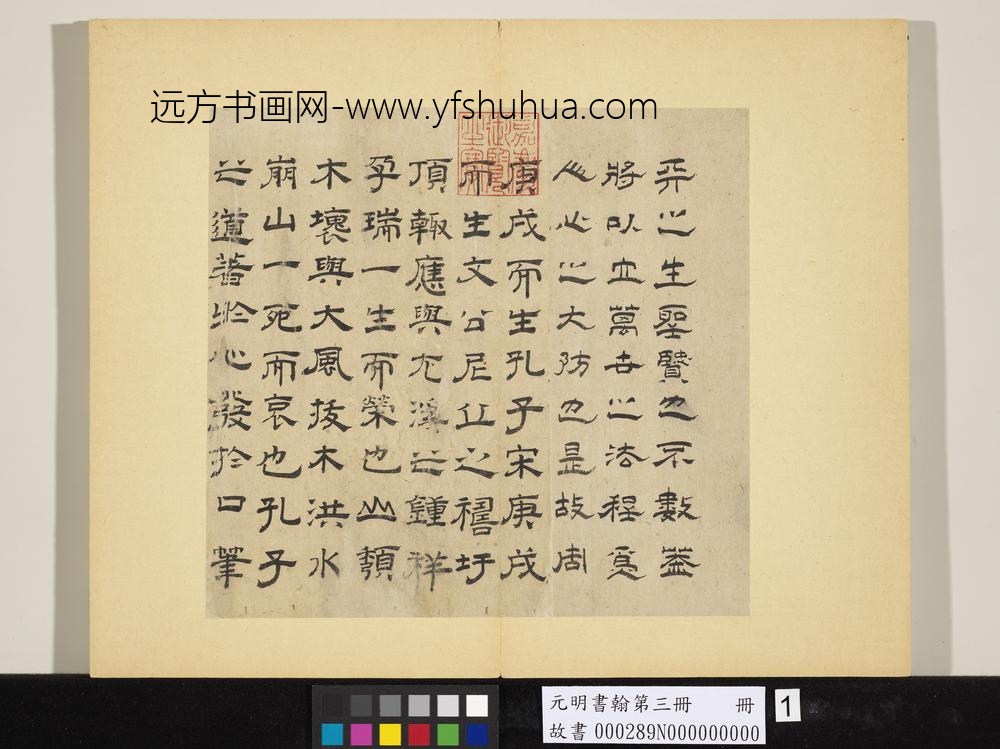 远方书画网-www.yfshuhua.com
嘉慶
御覽
之寶
天之生聖賢也不數蓋
將以立萬世之法程為
人心之大防也是故周
庚戌而生孔子宋庚戌
而生文公尼丘之禱圩
頂輒應與尤溪之鍾祥
孕瑞一生而榮也山頹
木壞與大風拔木洪水
崩山一死而哀也孔子
之道著於心發於口筆
元明書翰第三冊 冊
故書 000289N000000000
1